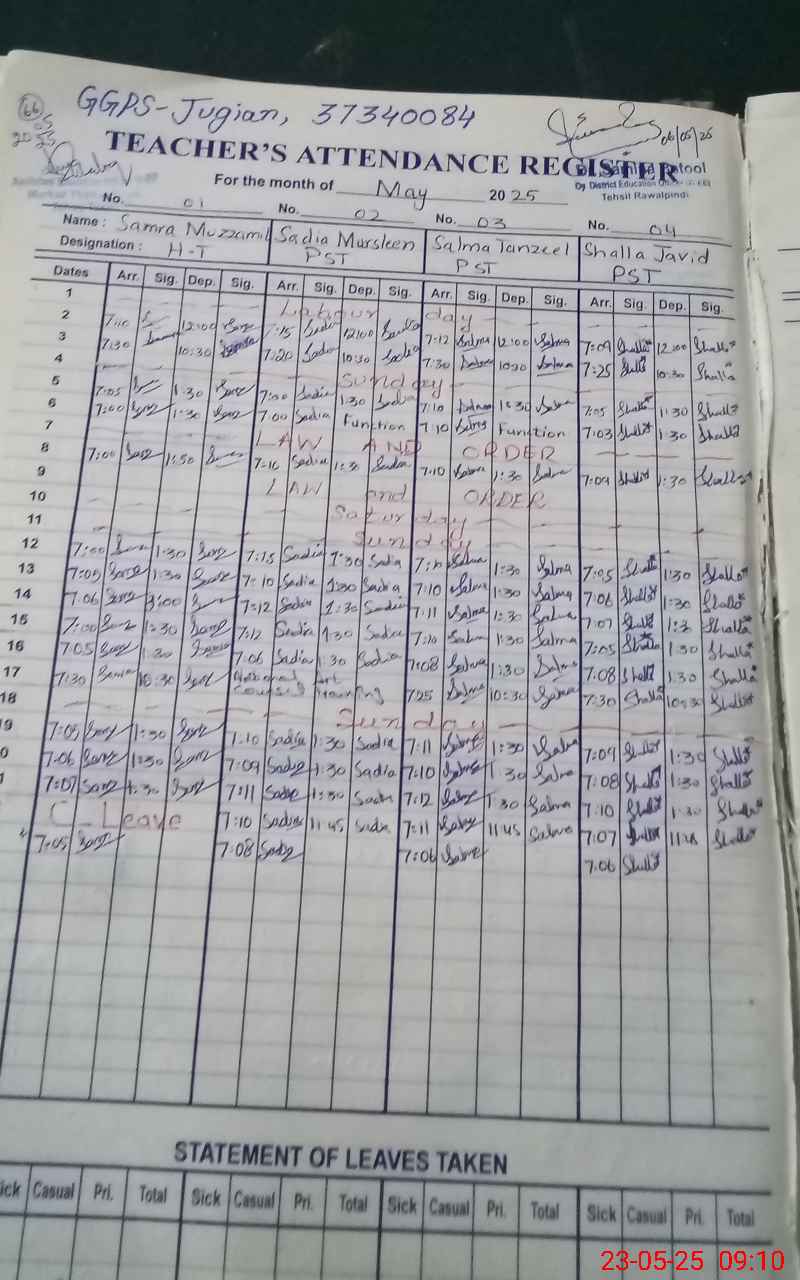 66
GGPS-Jugian, 37340084
05
2025
06/05/25
TEACHER'S ATTENDANCE REGISTER
For the month of May 2025
Dy. District Education Officer
Tehsil Rawalpindi
No. 01 No. 02 No. 03 No. 04
Name : Samra Muzzamil Sadia Mursleen Salma Tanzeel Shalla Javid
Designation : H-T PST PST PST
Dates Arr. Sig. Dep. Sig. Arr. Sig. Dep. Sig. Arr. Sig. Dep. Sig. Arr. Sig. Dep. Sig.
1 Labour day
2 7:10 12:00 7:15 Sadia 12:00 Sadia 7:12 Salma 12:00 Salma 7:09 Shalla 12:00 Shalla
3 7:30 10:30 7:20 Sadia 10:30 Sadia 7:30 Salma 10:30 Salma 7:25 Shalla 10:30 Shalla
4 Sunday
5 7:05 1:30 7:00 Sadia 1:30 Sadia 7:10 Salma 1:30 Salma 7:05 Shalla 1:30 Shalla
6 7:00 1:30 7:00 Sadia Function 7:10 Salma Function 7:03 Shalla 1:30 Shalla
7 LAW AND ORDER
8 7:00 1:30 7:10 Sadia 1:30 Sadia 7:10 Salma 1:30 Salma 7:09 Shalla 1:30 Shalla
9 LAW and ORDER
10 Saturday
11 Sunday
12 7:00 1:30 7:15 Sadia 1:30 Sadia 7:10 Salma 1:30 Salma 7:05 Shalla 1:30 Shalla
13 7:05 1:30 7:10 Sadia 1:30 Sadia 7:10 Salma 1:30 Salma 7:06 Shalla 1:30 Shalla
14 7:06 7:12 Sadia 1:30 Sadia 7:11 Salma 1:30 Salma 7:07 Shalla 1:3 Shalla
15 7:00 1:30 7:12 Sadia 1:30 Sadia 7:10 Salma 1:30 Salma 7:05 Shalla 1:30 Shalla
16 7:05 1:30 7:06 Sadia 1:30 Sadia 7:08 Salma 1:30 Salma 7:08 Shalla 1:30 Shalla
17 7:30 10:30 National Art 7:25 Salma 10:30 Salma 7:30 Shalla 10:30 Shalla
18 Sunday
9 7:05 1:30 7:10 Sadia 1:30 Sadia 7:11 Salma 1:30 Salma 7:09 Shalla 1:30 Shalla
0 7:06 1:30 7:09 Sadia 1:30 Sadia 7:10 Salma 1:30 Salma 7:08 Shalla 1:30 Shalla
1 7:07 1:30 7:11 Sadia 1:30 Sadia 7:12 Salma 1:30 Salma 7:10 Shalla 1:30 Shalla
C-Leave 7:10 Sadia 11:45 Sadia 7:11 Salma 11:45 Salma 7:07 Shalla 11:45 Shalla
7:05 7:08 Sadia 7:06 Salma 7:06 Shalla
STATEMENT OF LEAVES TAKEN
ick Casual Pri. Total Sick Casual Pri. Total Sick Casual Pri. Total Sick Casual Pri. Total
23-05-25 09:10